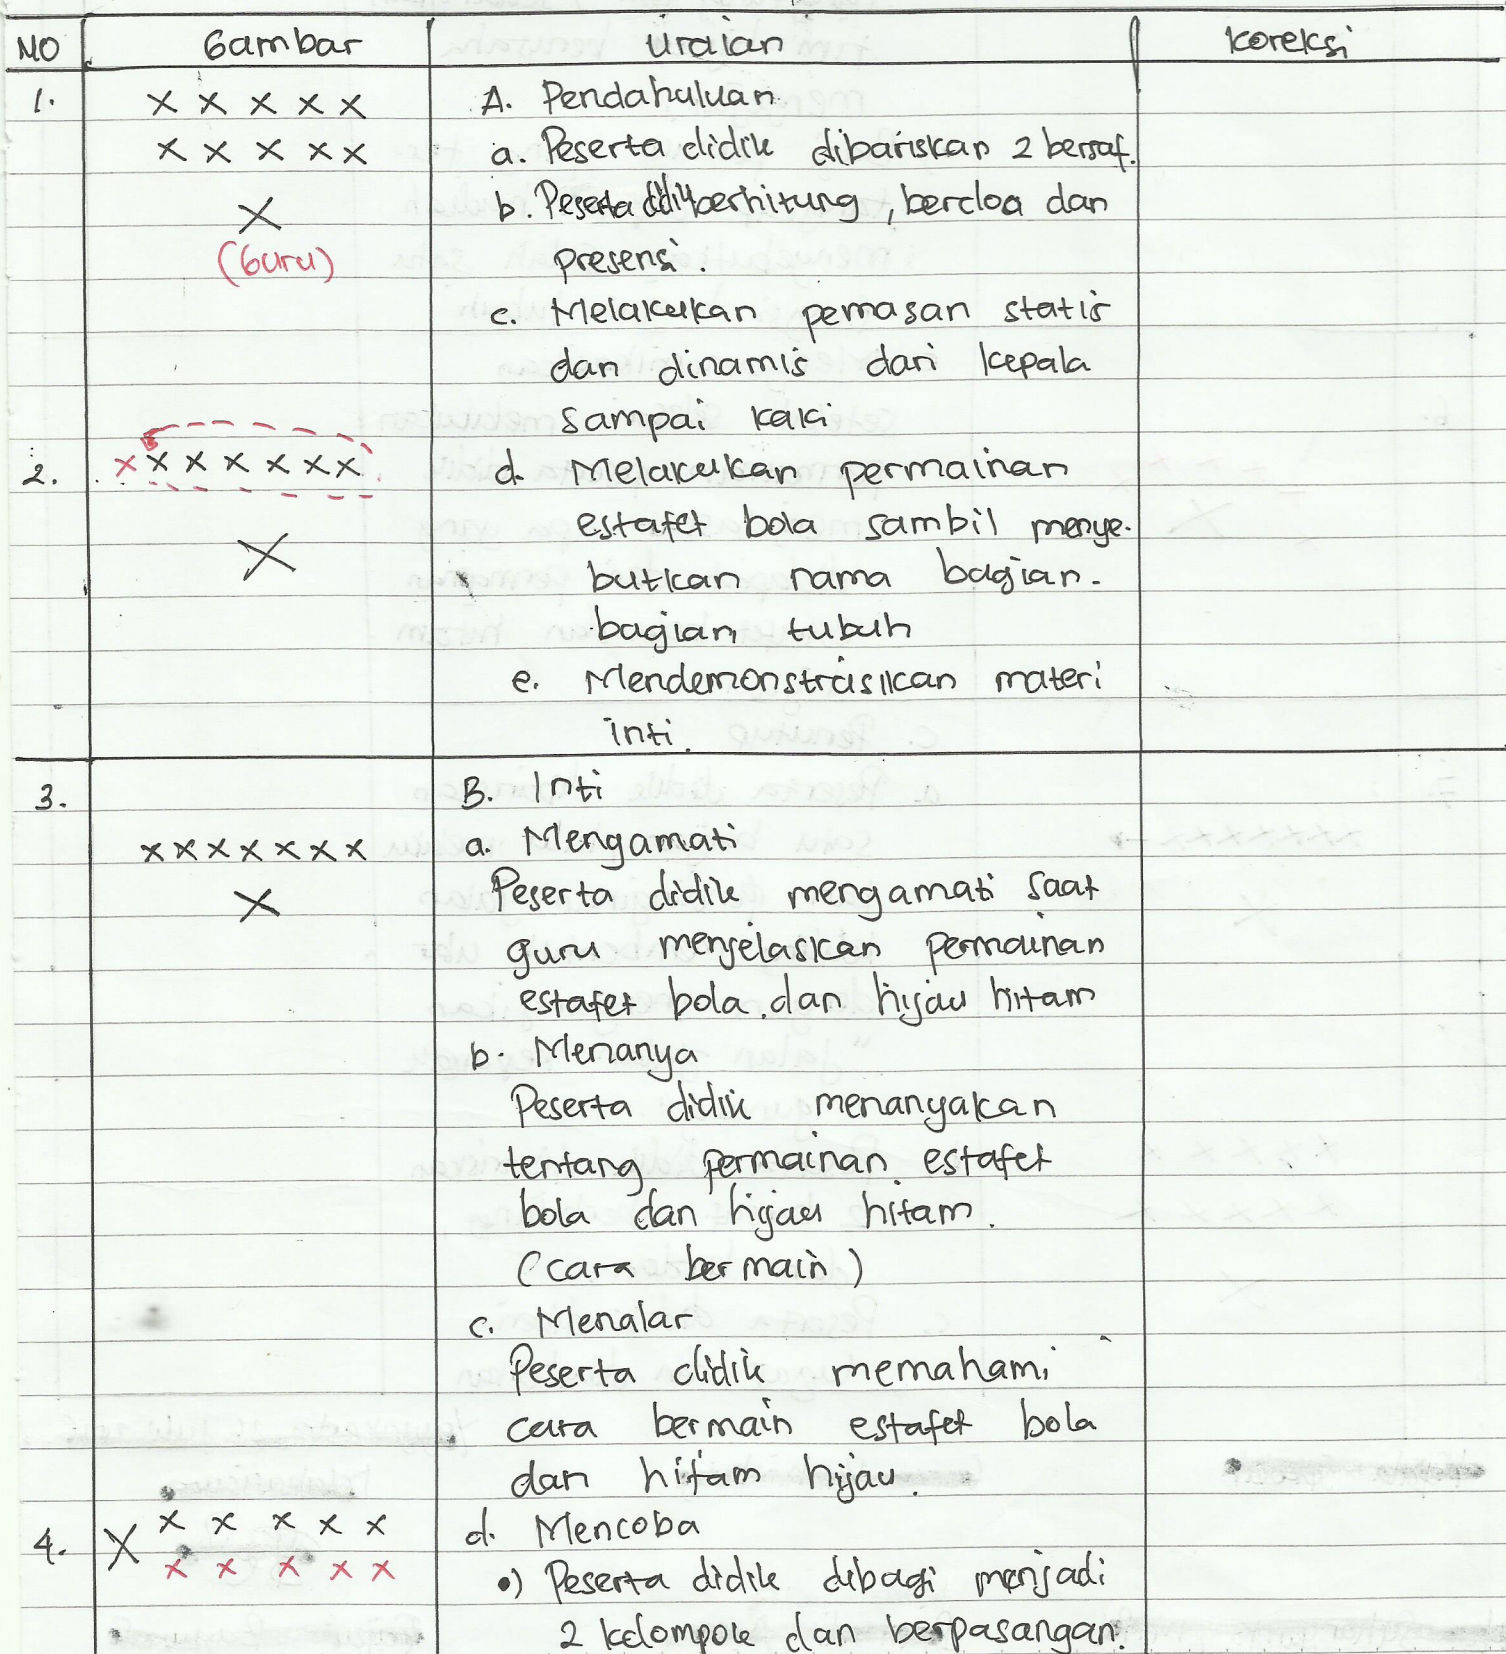 NO Gambar Uraian Koreksi
1. x x x x x A. Pendahuluan
x x x x x a. Peserta didik dibariskan 2 bersaf.
X b. Peserta didik berhitung, berdoa dan
(Guru) presensi.
c. Melakukan pemasan statis
dan dinamis dari kepala
sampai kaki
2. x x x x x x x d. Melakukan permainan
estafet bola sambil menye-
X butkan nama bagian-
bagian tubuh
e. Mendemonstrasikan materi
inti.
3. B. Inti
x x x x x x x a. Mengamati
X Peserta didik mengamati saat
guru menjelaskan permainan
estafet bola dan hijau hitam
b. Menanya
Peserta didik menanyakan
tentang permainan estafet
bola dan hijau hitam.
(cara bermain)
c. Menalar
Peserta didik memahami
cara bermain estafet bola
dan hitam hijau.
4. X x x x x x d. Mencoba
x x x x x •) Peserta didik dibagi menjadi
2 kelompok dan berpasangan.